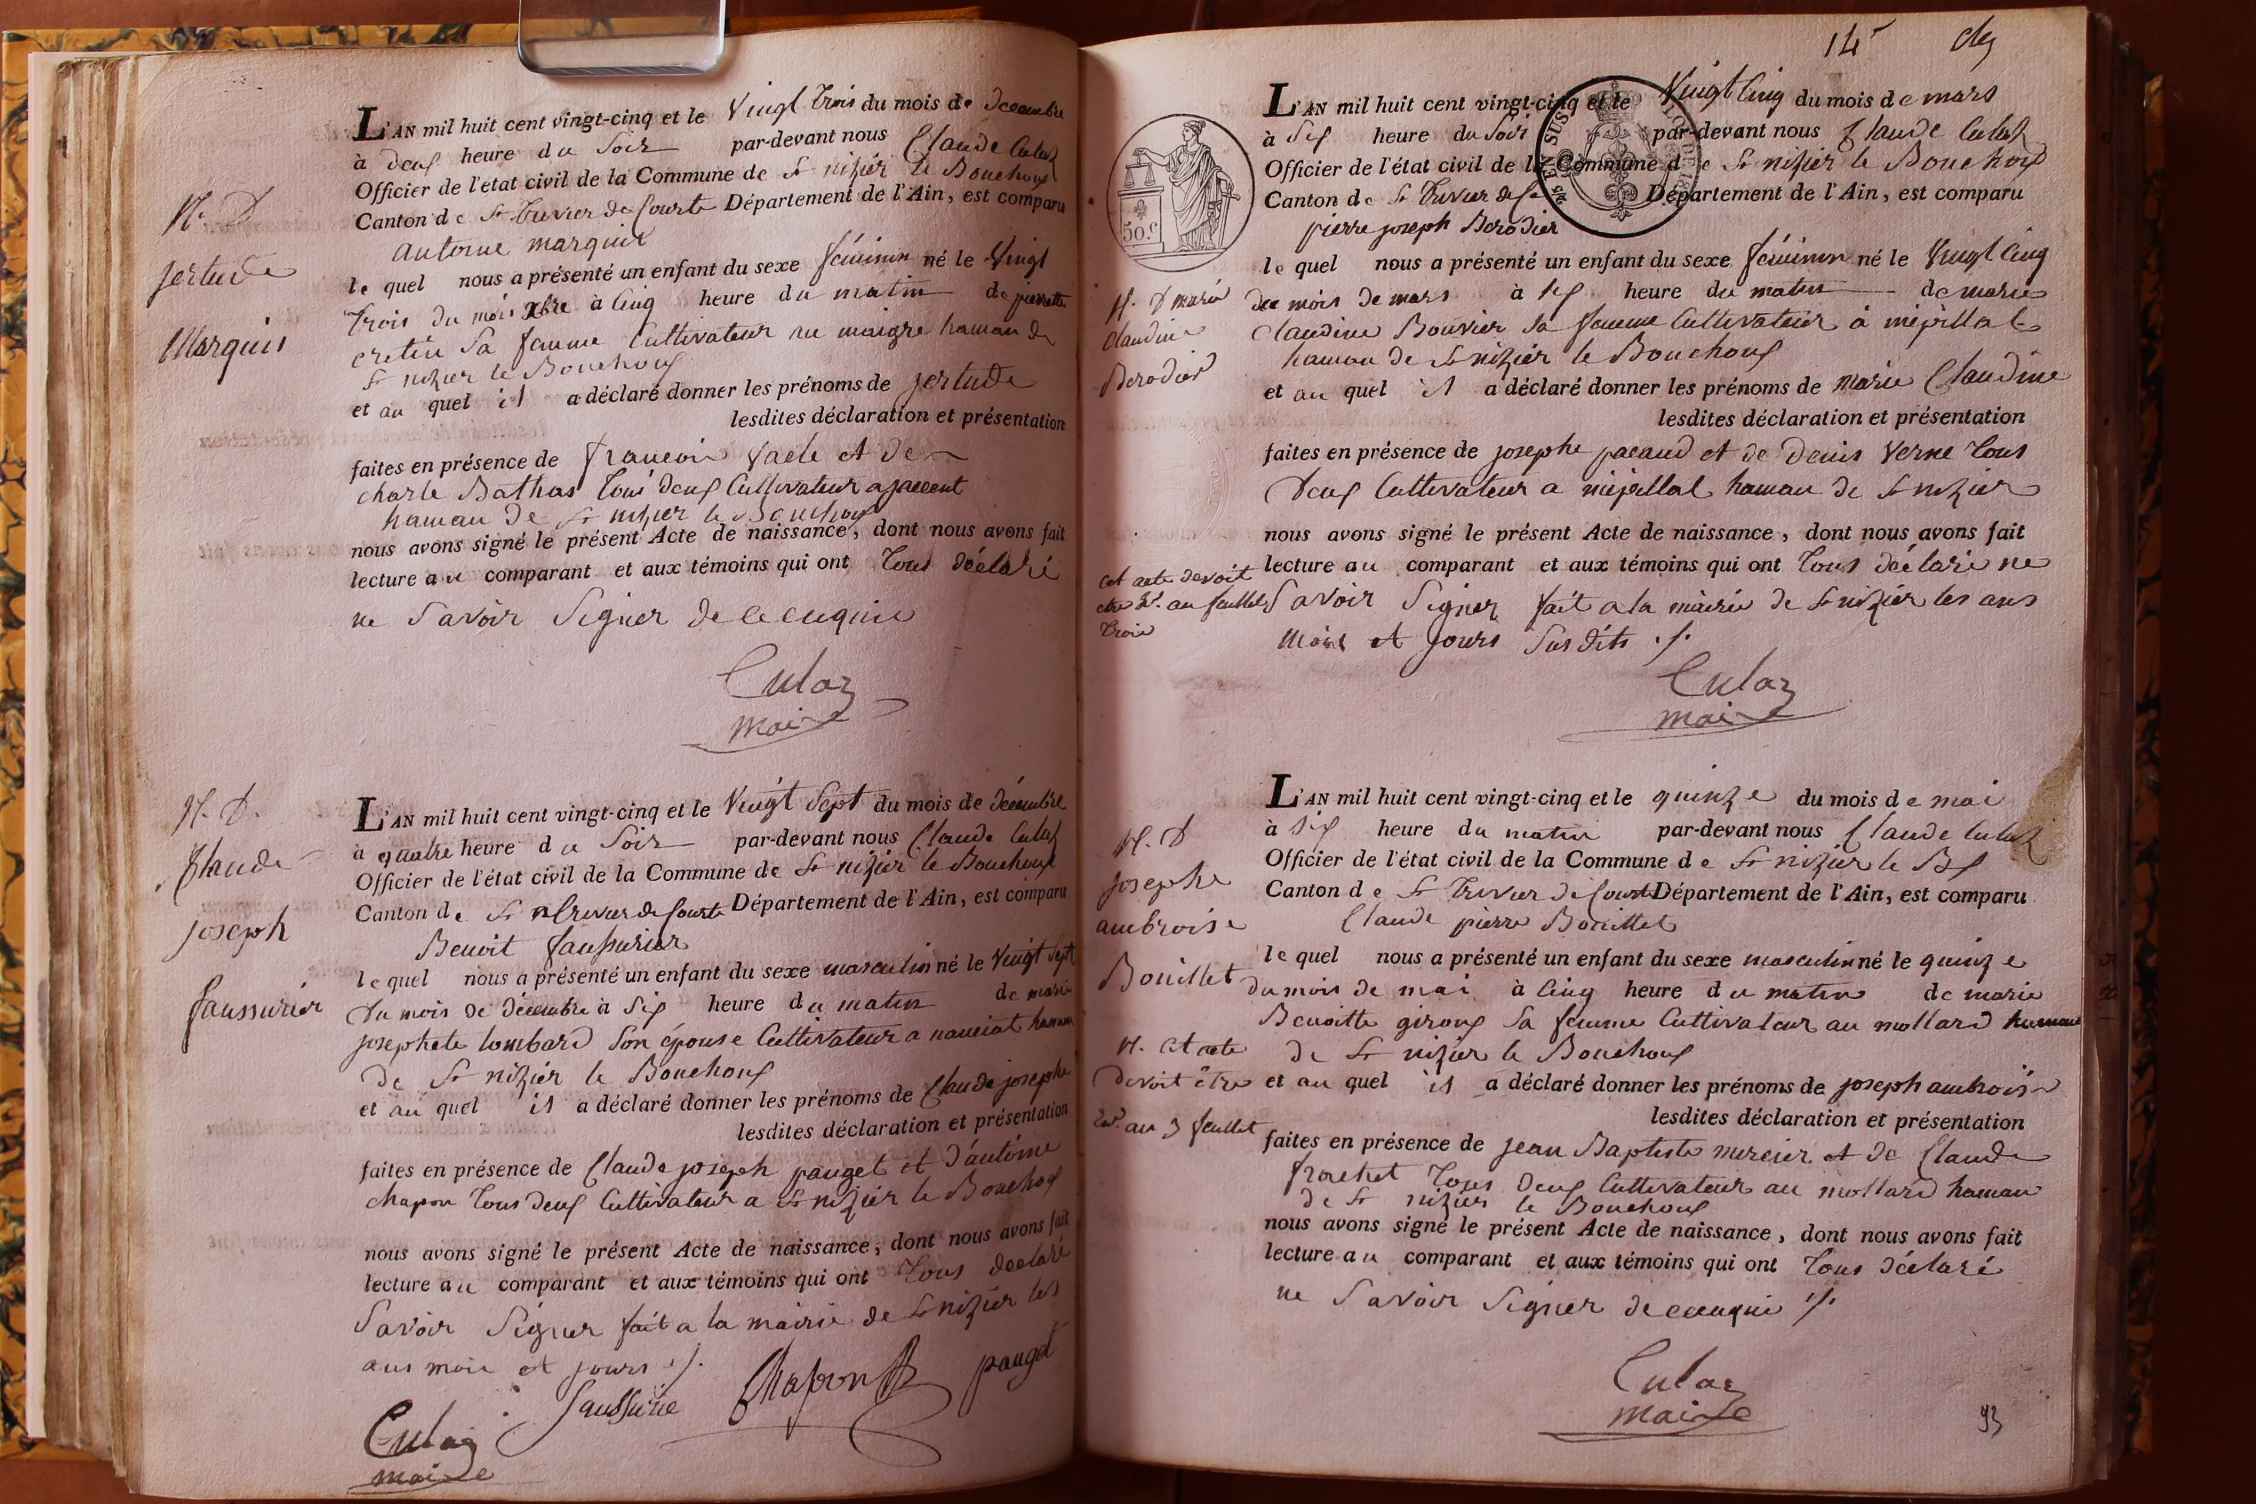 N. D.
Jertude
Marquis
L'AN mil huit cent vingt-cinq et le Vingt trois du mois de décembre
à deux heure du Soir par-devant nous Claude Culaz
Officier de l'état civil de la Commune de St nizier le Bouchoux
Canton de St trivier de Courte Département de l'Ain, est comparu
antoine marquis
le quel nous a présenté un enfant du sexe féminin né le Vingt
trois du mois Xbre à Cinq heure du matin de pierrette
cretin Sa femme Cultivateur au maigre hamau de
St nizier le Bouchoux
et au quel il a déclaré donner les prénoms de Jertude
lesdites déclaration et présentation
faites en présence de francois et de
charle Bathas tous deux Cultivateur a
hamau de St nizier le Bouchoux
nous avons signé le présent Acte de naissance, dont nous avons fait
lecture au comparant et aux témoins qui ont tous déclaré
ne Savoir Signer de ce enquis
Culaz
maire
N. D.
Claude
Joseph
faussurier
L'AN mil huit cent vingt-cinq et le Vingt Sept du mois de décembre
à quatre heure du Soir par-devant nous Claude Culaz
Officier de l'état civil de la Commune de St nizier le Bouchoux
Canton de St trivier de Courte Département de l'Ain, est comparu
Benoit faussurier
le quel nous a présenté un enfant du sexe masculin né le Vingt Sept
Du mois de décembre à Six heure du matin de marie
josephete lombard Son épouse Cultivateur a hamau
de St nizier le Bouchoux
et au quel il a déclaré donner les prénoms de Claude josephe
lesdites déclaration et présentation
faites en présence de Claude joseph pauget et d'antoine
chapon tous deux Cultivateur a St nizier le Bouchox
nous avons signé le présent Acte de naissance, dont nous avons fait
lecture au comparant et aux témoins qui ont tous déclaré
Savoir Signer fait a la mairie de St nizier les
ans mois et jours ./.
faussurie Chapon pauget
Culaz
maire
14
50.c
EN SUS
N. D marie
Claudine
Berodier
L'AN mil huit cent vingt-cinq et le Vingt Cinq du mois de mars
à Six heure du Soir par-devant nous Claude Culaz
Officier de l'état civil de la Commune de St nizier le Bouchoux
Canton de St trivier de Département de l'Ain, est comparu
pierre joseph Berodier
le quel nous a présenté un enfant du sexe féminin né le Vingt Cinq
du mois de mars à Six heure du matin de marie
Claudine Bouvier Sa femme Cultivateur à mépillat
hamau de St nizier le Bouchoux
et au quel il a déclaré donner les prénoms de marie Claudine
lesdites déclaration et présentation
faites en présence de josephe pacaud et de Denis Verne tous
Deux Cultivateur a mépillat hamau de St nizier
nous avons signé le présent Acte de naissance, dont nous avons fait
lecture au comparant et aux témoins qui ont tous déclaré ne
Savoir Signer fait a la mairie de St nizier les ans
mois et jours Sus dits ./.
cet acte devoit
etre au feuillet
trois
Culaz
maire
N. D
Josephe
ambroise
Bouillet
L'AN mil huit cent vingt-cinq et le quinze du mois de mai
à Six heure du matin par-devant nous Claude Culaz
Officier de l'état civil de la Commune de St nizier le Bx
Canton de St trivier de Courte Département de l'Ain, est comparu
Claude pierre Bouillet
le quel nous a présenté un enfant du sexe masculin né le quinze
du mois de mai à Cinq heure du matin de marie
Benoitte giroux Sa femme Cultivateur au mollard hamau
de St nizier le Bouchoux
et au quel il a déclaré donner les prénoms de joseph ambroise
lesdites déclaration et présentation
faites en présence de jean Baptiste mercier et de Claude
frochet tous Deux Cultivateur au mollard hamau
de St nizier le Bouchoux
nous avons signé le présent Acte de naissance, dont nous avons fait
lecture au comparant et aux témoins qui ont tous déclaré
ne Savoir Signer de ce enquis ./.
N. Cet acte
devoit être
au 3 feuillet
Culaz
maire
93